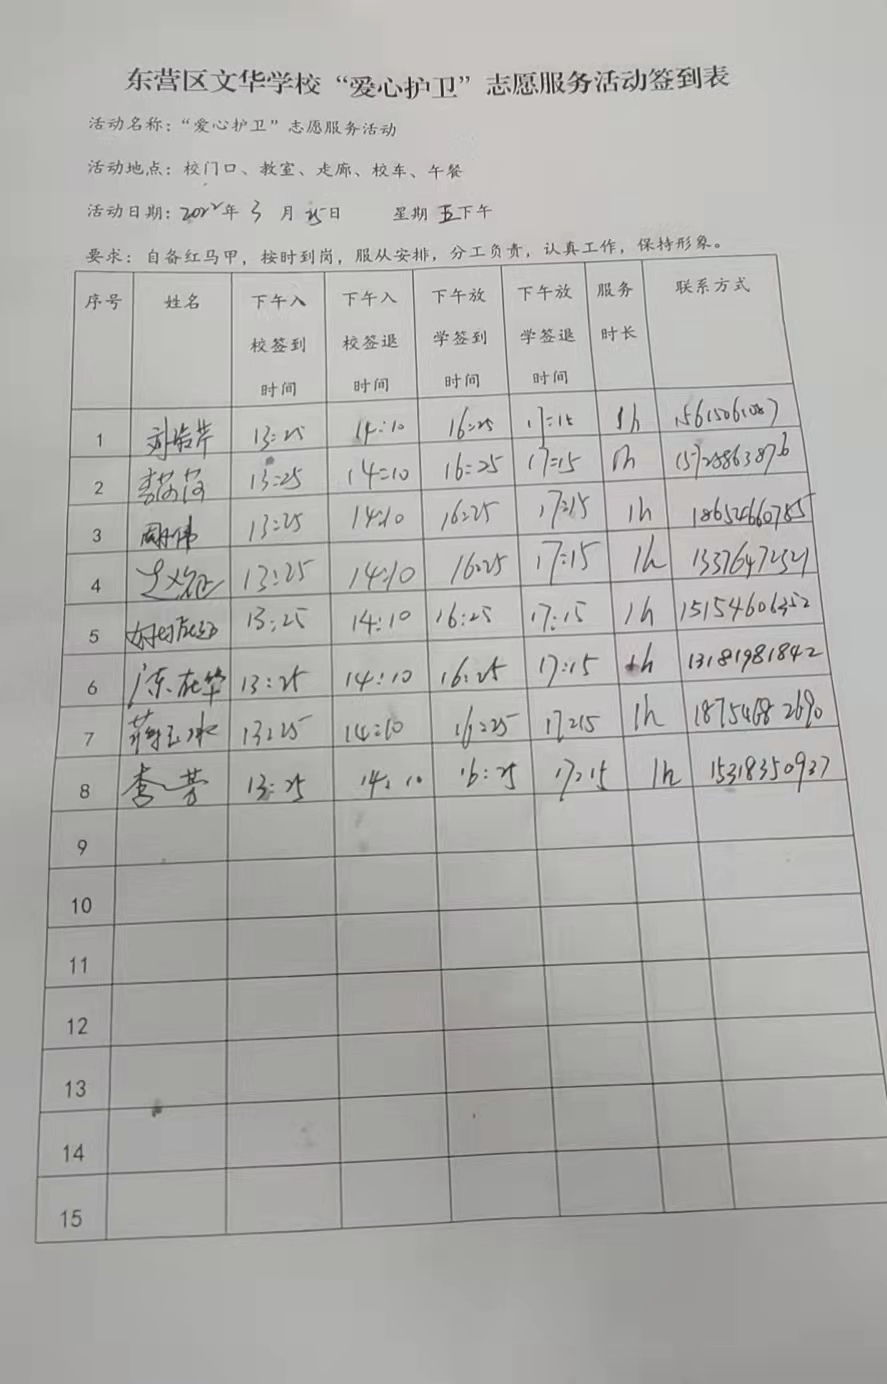 东营区文华学校“爱心护卫”志愿服务活动签到表
活动名称：“爱心护卫”志愿服务活动
活动地点：校门口、教室、走廊、校车、午餐
活动日期：2022年 3 月 25日 星期 五下午
要求：自备红马甲，按时到岗，服从安排，分工负责，认真工作，保持形象。
序号 姓名 下午入校签到时间 下午入校签退时间 下午放学签到时间 下午放学签退时间 服务时长 联系方式
1 13:25 14:10 16:25 17:15 1h
2 李莎莎 13:25 14:10 16:25 17:15 1h 15725863876
3 周伟 13:25 14:10 16:25 17:15 1h 18654660785
4 13:25 14:10 16:25 17:15 1h
5 13:25 14:10 16:25 17:15 1h 15154606352
6 13:25 14:10 16:25 17:15 1h 13181981842
7 蒋玉冰 13:25 14:10 16:25 17:15 1h 18754682690
8 李芳 13:25 14:10 16:25 17:15 1h 15318350937
9
10
11
12
13
14
15